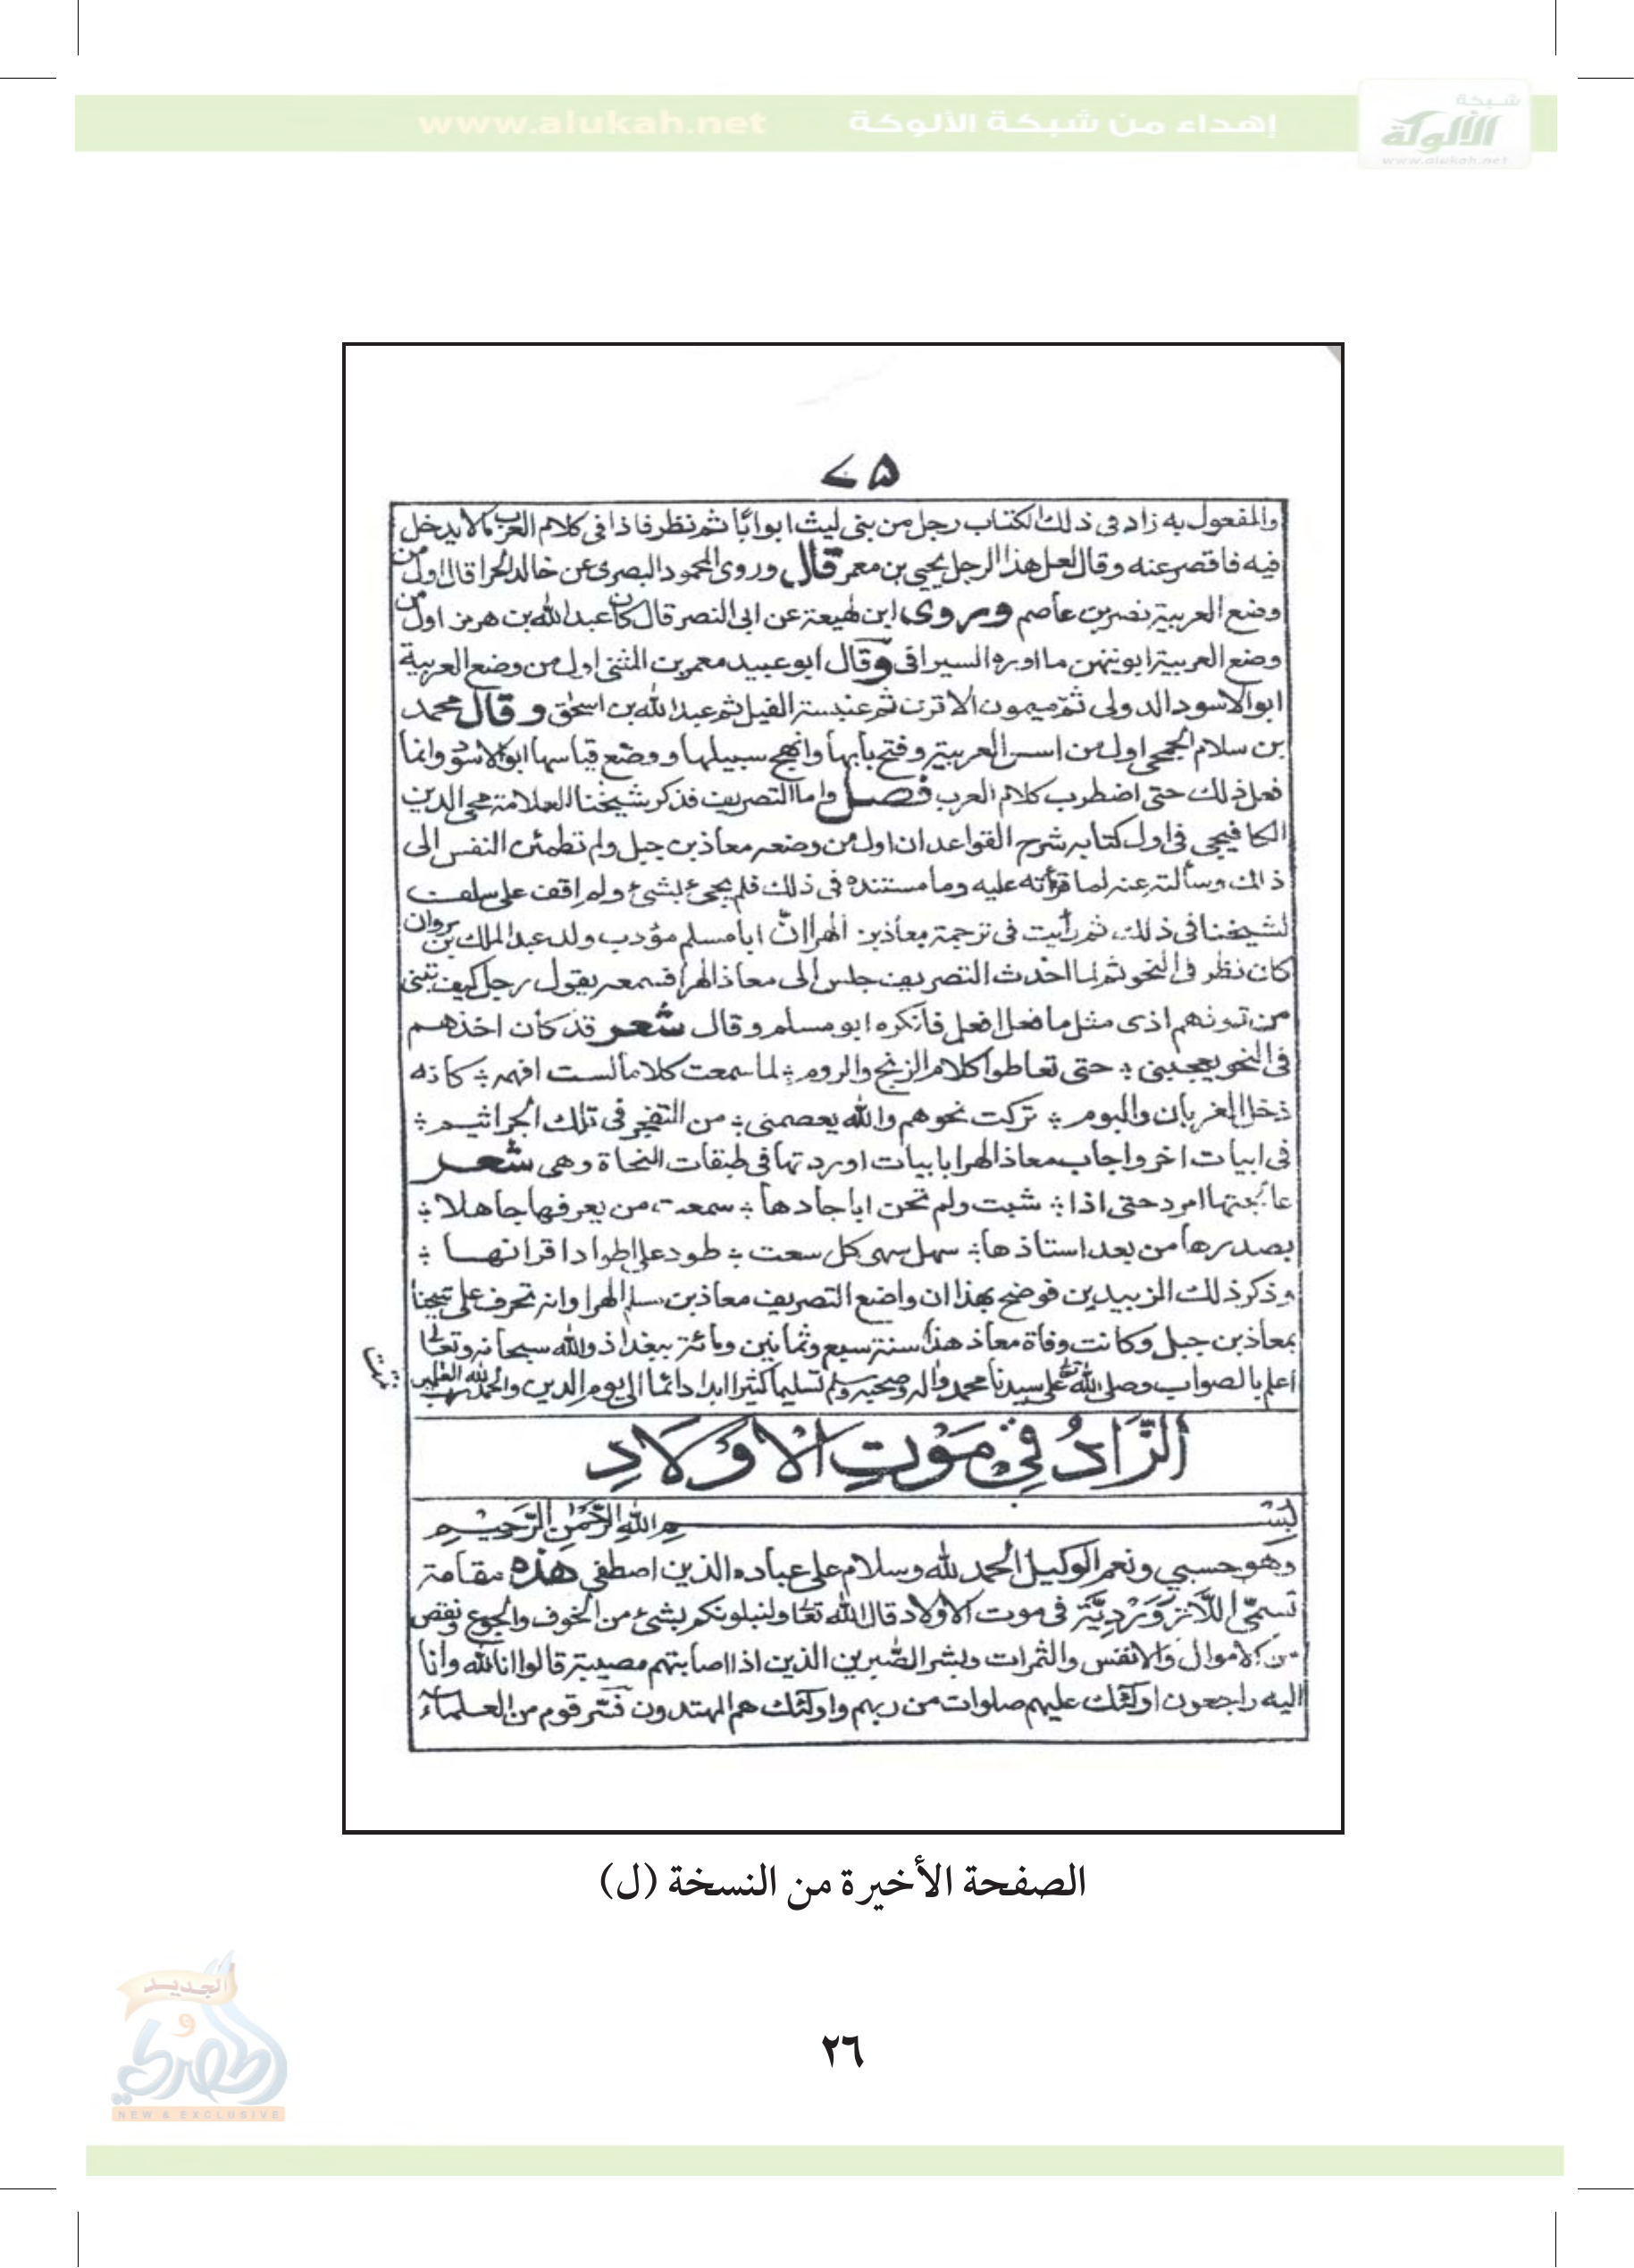 شبكة
الألوكة
www.alukah.net
إهداء من شبكة الألوكة www.alukah.net
٧٥
والمفعول به زاد فى ذلك الكتاب رجل من بنى ليث ابوابًا ثم نظر فاذا فى كلام العرب مالا يدخل
فيه فاقصر عنه وقال لعل هذا الرجل يحيى بن معمر قال وروى المحمود البصرى عن خالد الحرا قال اول من
وضع العربية نصر بن عاصم وروى ابن لهيعة عن ابى النصر قال كان عبد الله بن هرمز اول من
وضع العربية ما اورده السيرافى وقال ابو عبيد معمر بن المثنى اول من وضع العربية
ابو الاسود الدولى ثم ميمون الاقرن ثم عنبسة الفيل ثم عبد الله بن اسحٰق وقال محمد
بن سلام الجمحى اول من اسس العربية وفتح بابها وانهج سبيلها ووضع قياسها ابو الاسود وانما
فعل ذلك حتى اضطرب كلام العرب فصل واما التصريف فذكر شيخنا العلامة محى الدين
الكافيجى فى اول كتابه شرح القواعد ان اول من وضعه معاذ بن جبل ولم تطمئن النفس الى
ذالك وسألته عنه لما قرأته عليه وما مستنده فى ذلك فلم يجئ بشئ ولم اقف على سلف
لشيخنا فى ذلك ثم رأيت فى ترجمة معاذ بن الهرا انّ ابا مسلم مؤدب ولد عبد الملك بن مروان
كان نظر فى النحو ثم لما احدث التصريف جلس الى معاذ الهرا فسمعه يقول رجل كيف تبنى
من اذى مثل ما فعل افعل فانكره ابو مسلم وقال شعر قد كان اخذهم
فى النحو يعجبنى ؞ حتى تعاطوا كلام الزنج والروم ؞ لما سمعت كلاما لست افهمه ؞ كانه
الغربان والبوم ؞ تركت نحوهم والله يعصمنى ؞ من فى تلك الجراثيم ؞
فى ابيات اخر واجاب معاذ الهرا بابيات اوردتها فى طبقات النحاة وهى شعر
عالجتها امرد حتى اذا ؞ شبت ولم تحن اباجادها ؞ سمعت من يعرفها جاهلا ؞
بصدرها من بعد استاذها ؞ سهل كل ؞ طود على اطواد اقرانها ؞
وذكر ذلك الزبيدين فوضح بهذا ان واضع التصريف معاذ بن سلم الهرا وانه تحرف على شيخنا
بمعاذ بن جبل وكانت وفاة معاذ هذا سنة سبع وثمانين ومائة ببغداذ والله سبحانه وتعالى
اعلم بالصواب وصلى الله تعالى على سيدنا محمد واله وصحبه وسلم تسليما كثيرا ابدا دائما الى يوم الدين والحمد لله رب العلمين
تمت
اَلزَّادُ فِيْ مَوْتِ الْاَوْلَادِ
بِسْمِ اللّٰهِ الرَّحْمٰنِ الرَّحِيْمِ
وهو حسبي ونعم الوكيل الحمد لله وسلام على عباده الذين اصطفى هذه مقامة
تسمّى اللَّازَوَرْدِيَّة فى موت الاولاد قال الله تعالى ولنبلونكم بشئ من الخوف والجوع ونقص
من الاموال والانفس والثمرات وبشر الصّبرين الذين اذا اصابتهم مصيبة قالوا انا لله وانا
اليه راجعون اولٰئك عليهم صلوات من ربهم واولٰئك هم المهتدون قوم من العلماء
الصفحة الأخيرة من النسخة (ل)
٢٦
الجديد
و
المصري
NEW & EXCLUSIVE